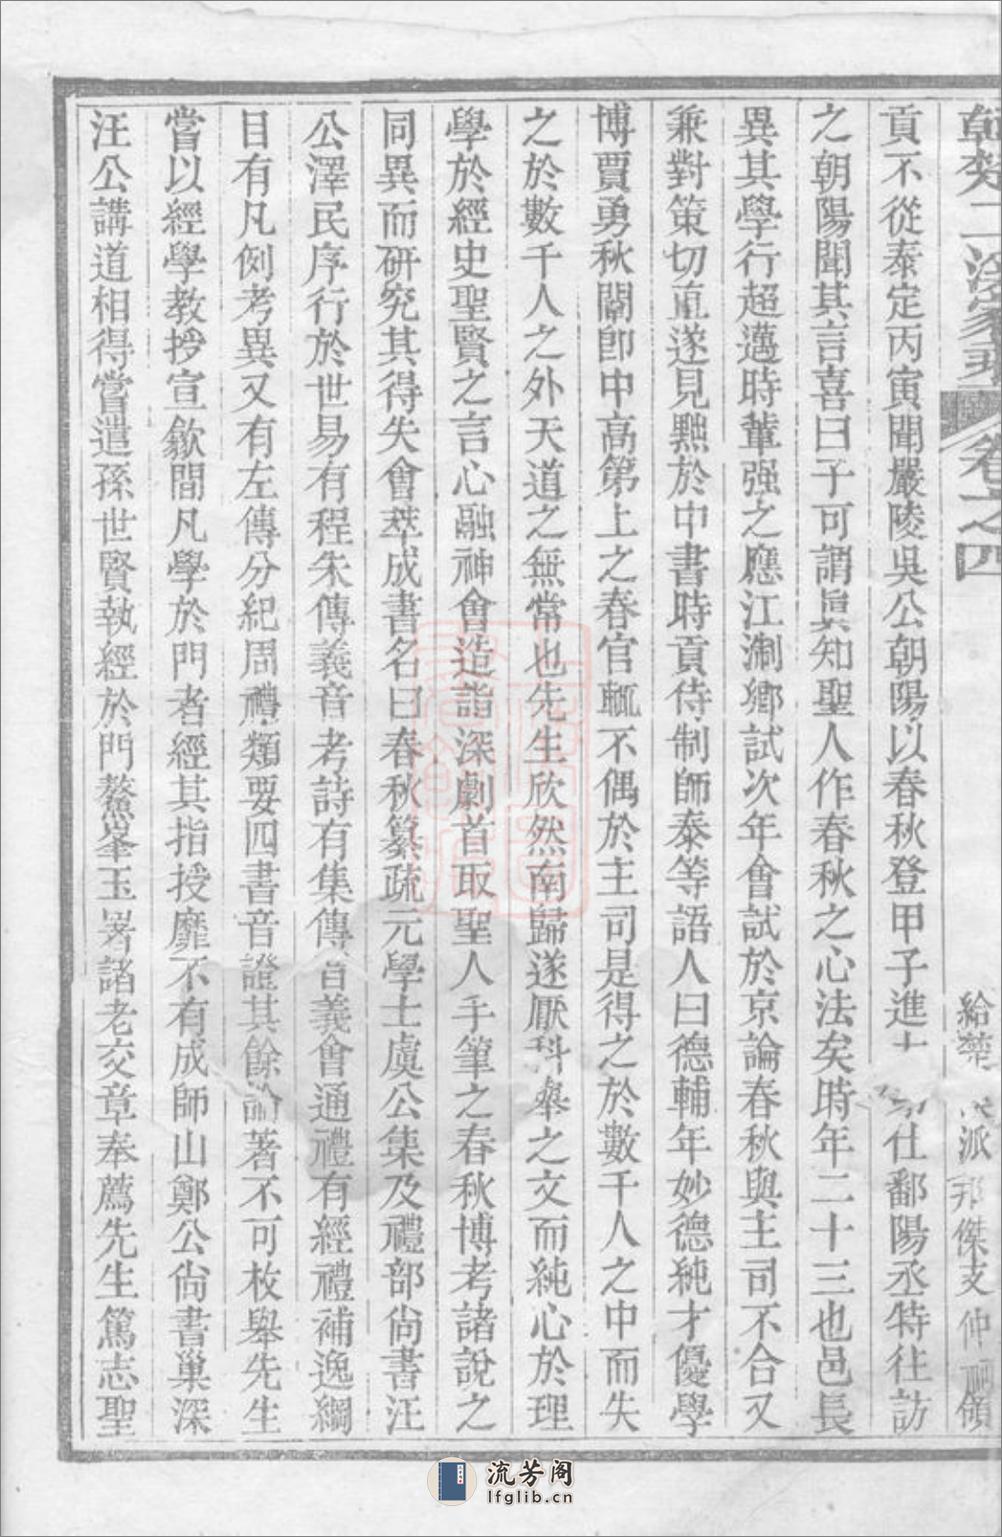 卷之四
派 傑支仲
貢不從泰定丙寅聞嚴陵吳公朝陽以春秋登甲子進仕鄱陽丞特往訪
之朝陽聞其言喜曰子可謂眞知聖人作春秋之心法矣時年二十三也邑長
異其學行超邁時輩强之應江淛鄉試次年會試於京論春秋與主司不合又
兼對策切直遂見黜於中書時貢待制師泰等語人曰德輔年妙德純才優學
博賈勇秋闈卽中高第上之春官輒不偶於主司是得之於數千人之中而失
之於數千人之外天道之無常也先生欣然南歸遂厭科舉之文而純心於理
學於經史聖賢之言心融神會造詣深劇首取聖人手筆之春秋博考諸說之
同異而研究其得失會萃成書名曰春秋纂疏元學士虞公集及禮部尙書汪
公澤民序行於世易有程朱傳義音考詩有集傳音義會通禮有經禮補逸綱
目有凡例考異又有左傳分紀周禮類要四書音證其餘論著不可枚舉先生
嘗以經學教授宣歙間凡學於門者經其指授靡不有成師山鄭公尙書巢深
汪公講道相得嘗遣孫世賢執經於門鰲峯玉署諸老交章奉薦先生篤志聖
流芳阁
lfglib.cn